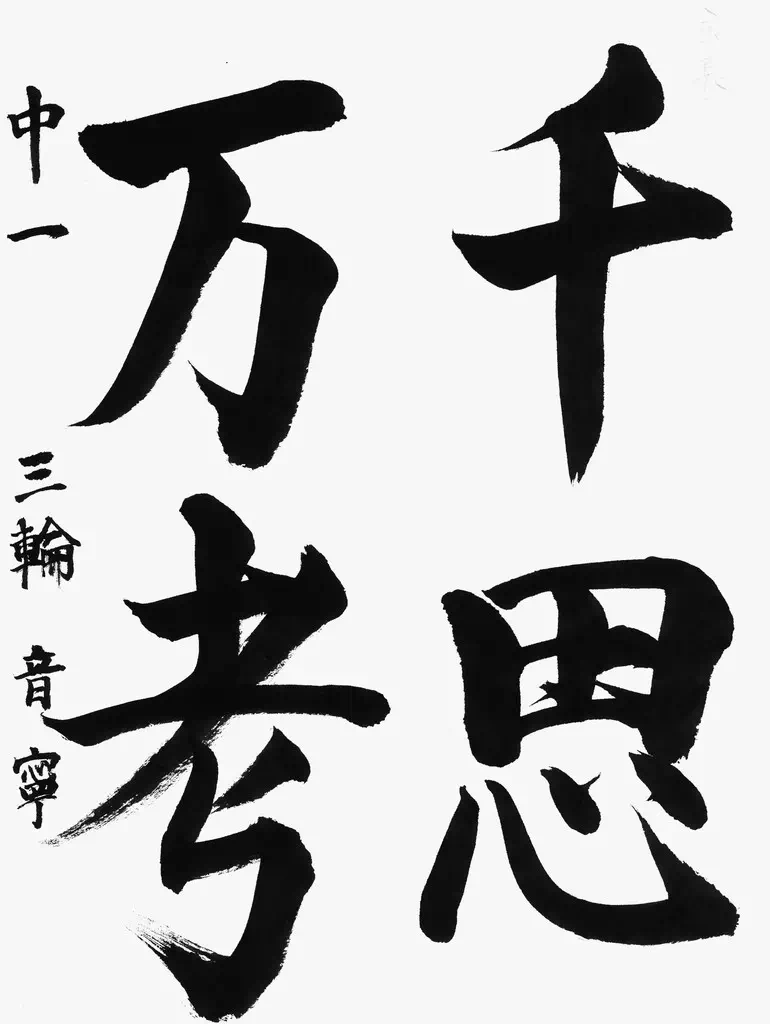 千思
万考
中一 三輪 音寧